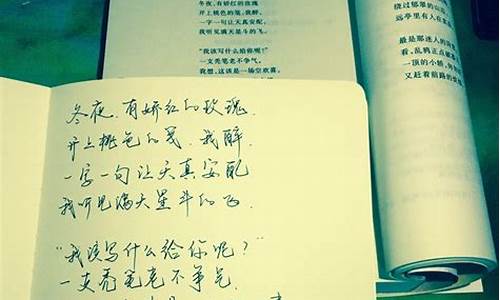 冬夜，有娇红的玫瑰
开上桃色的笺，我醉，
一字一句让天真安配，
我听见满天星斗的飞。
“我该写什么给你呢？”
一支秃笔老不争气。
我想，这该是一场空欢喜。
绕过郁翠的山
远亭里有人在
最是那迷人的
看，乱鸦正点破
一顶的小轿，
又赶着前路的
冬夜，有娇红的玫瑰，
开上桃色的笺，我醉，
一字一句让天真安配
我听见满天星斗的飞．
“我该写什么给你呢？”
一支秃笔老不争气．